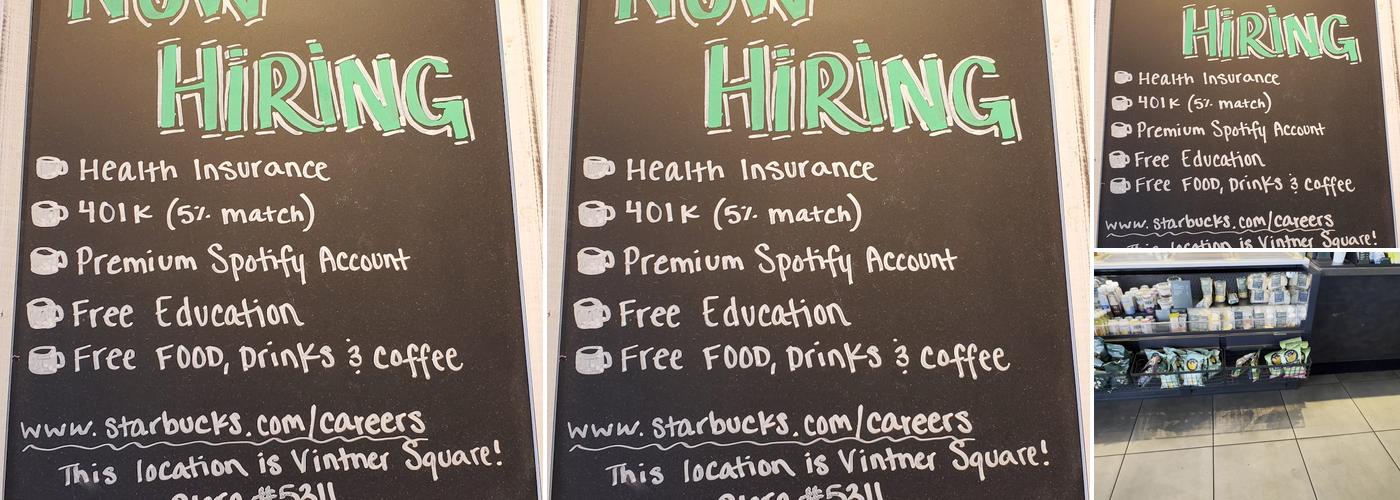 NOW
HIRING
Health Insurance
401K (5% match)
Premium Spotify Account
Free Education
Free FOOD, Drinks & Coffee
www.starbucks.com/careers
This location is Vintner Square!
Store #5311
NOW
HIRING
Health Insurance
401K (5% match)
Premium Spotify Account
Free Education
Free FOOD, Drinks & Coffee
www.starbucks.com/careers
This location is Vintner Square!
Store #5311
HIRING
Health Insurance
401K (5% match)
Premium Spotify Account
Free Education
Free FOOD, Drinks & Coffee
www.starbucks.com/careers
This location is Vintner Square!